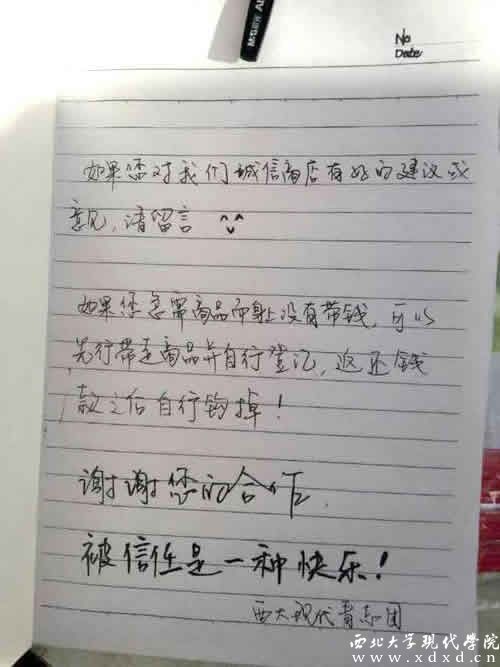 M&G
No
Date
如果您对我们诚信商店有好的建议或
意见,请留言 ^_^
如果您急需商品而身上没有带钱,可以
先行带走商品并自行登记,返还钱
款之后自行钩掉!
谢谢您的合作.
被信任是一种快乐!
西大现代青志团
西北大学现代学院
www.xdxd.cn